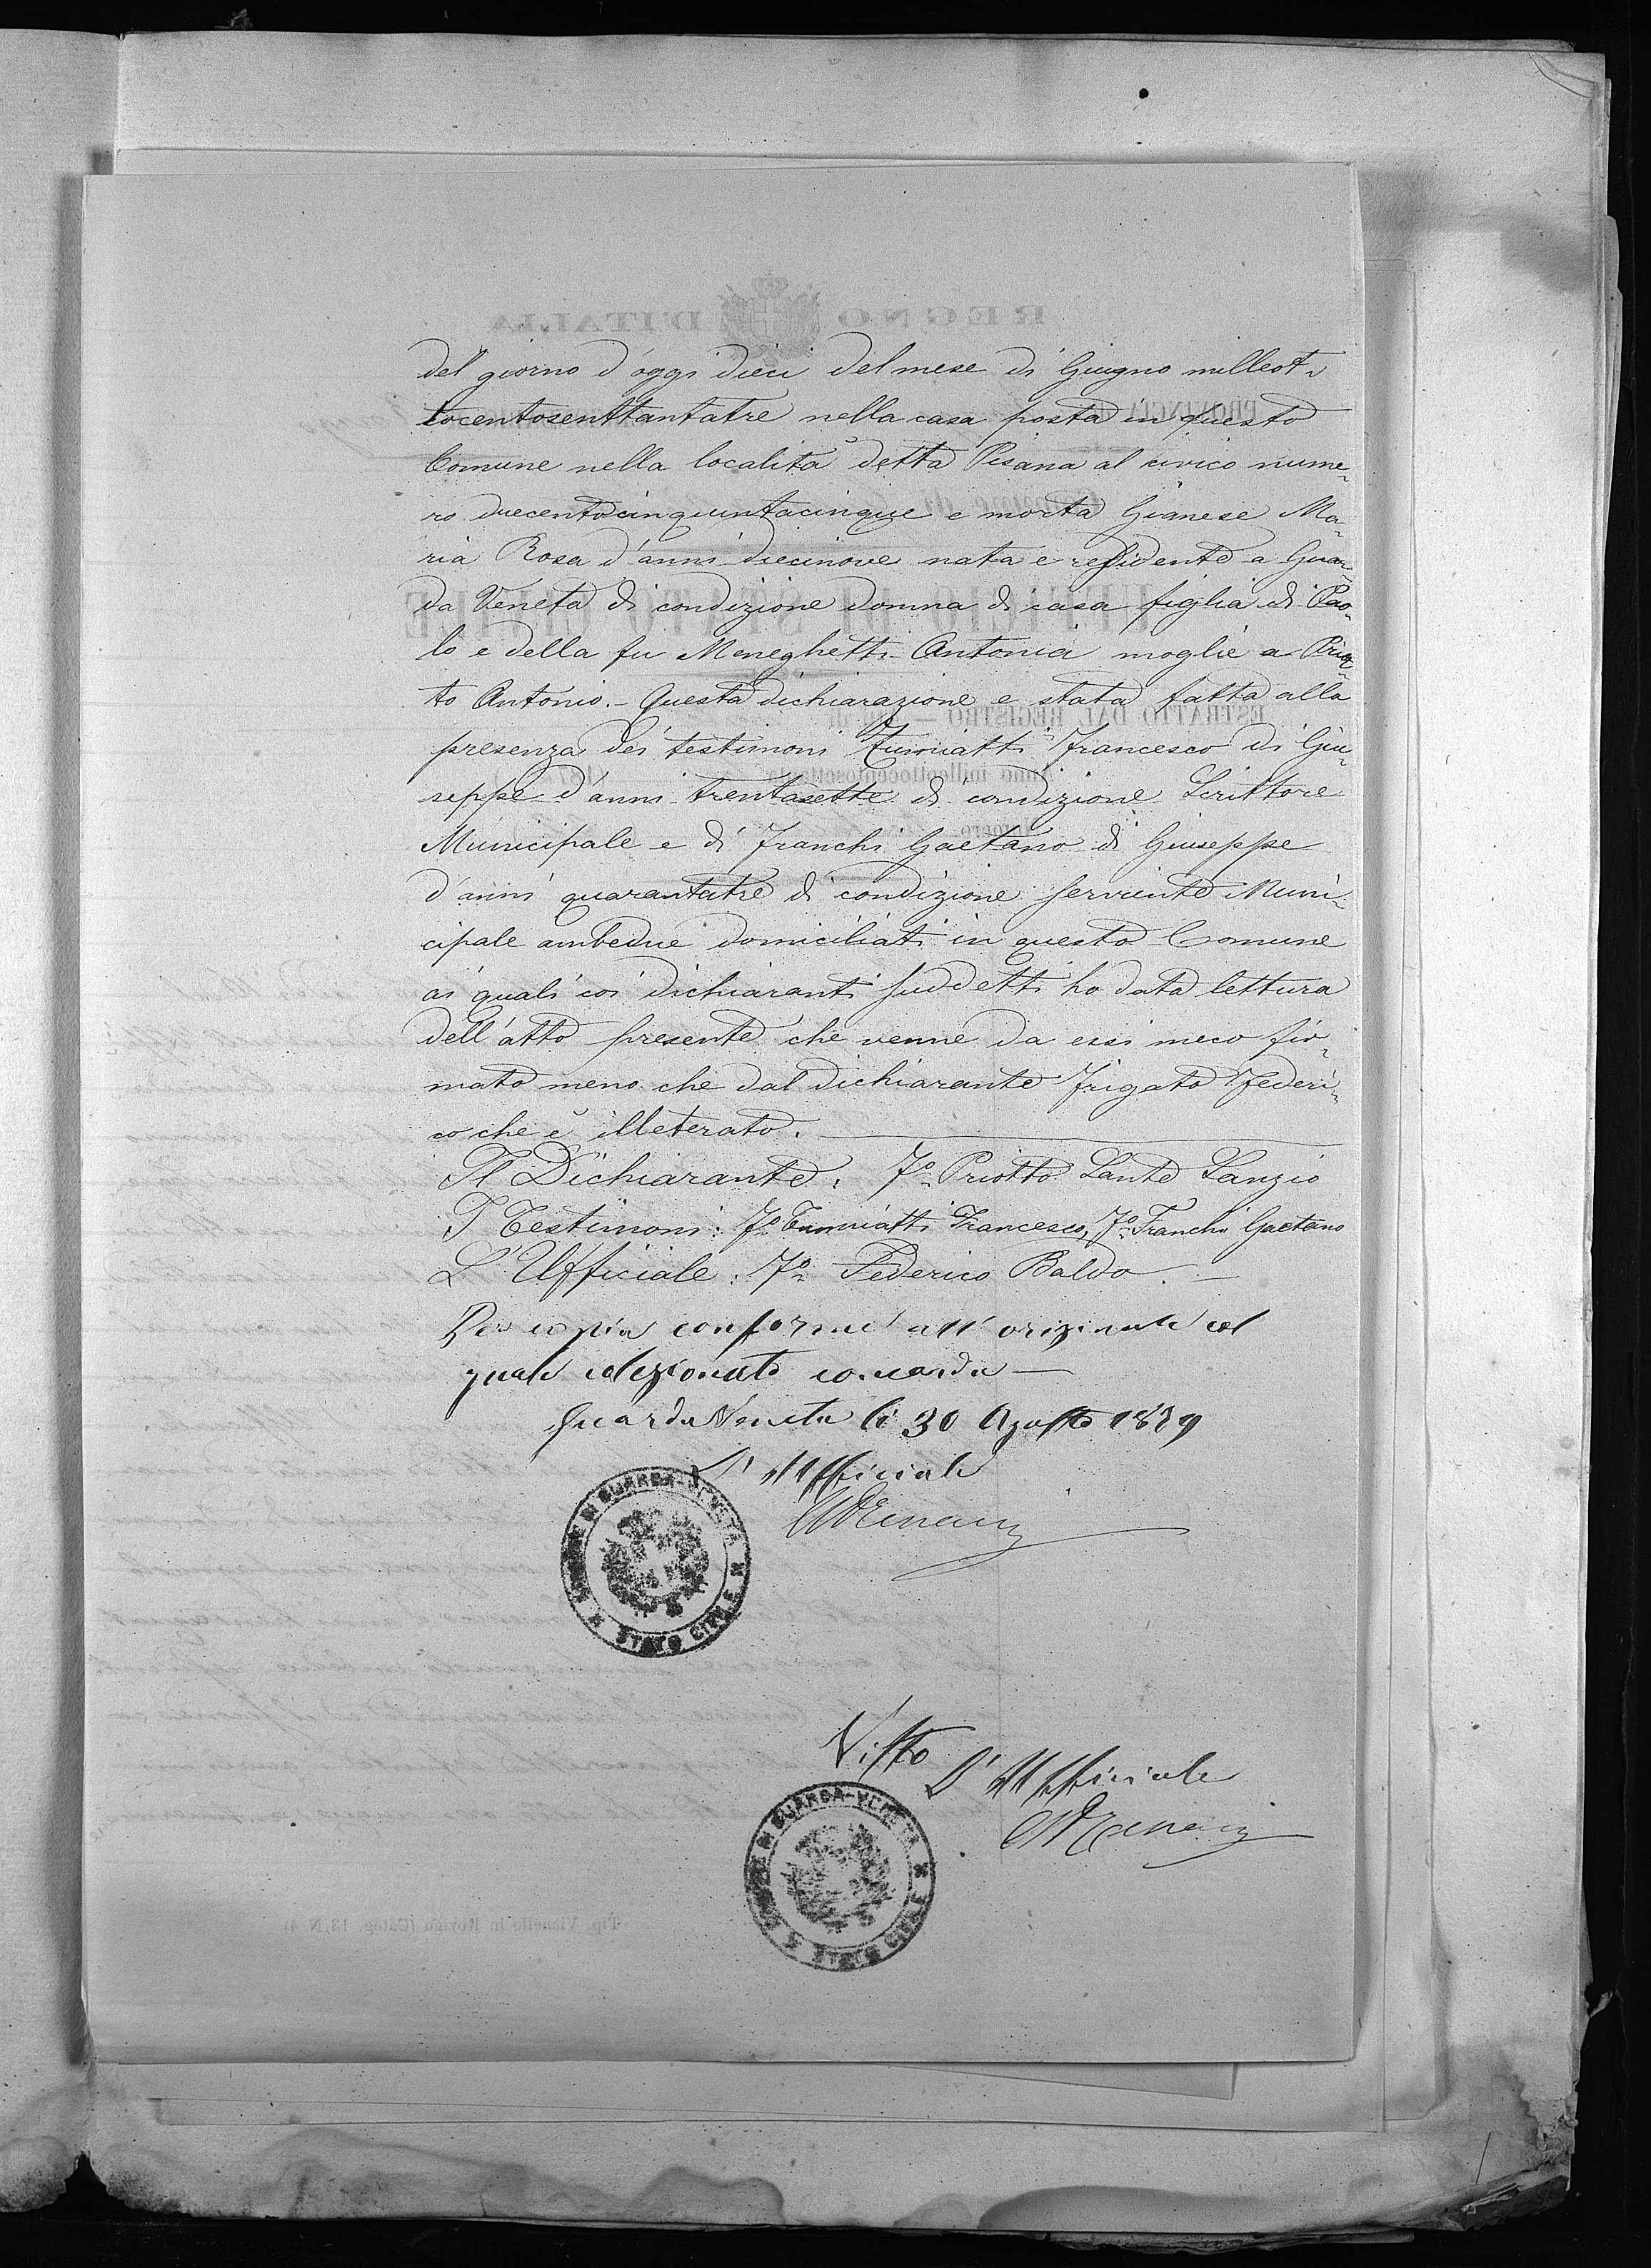 del giorno d'oggi dieci del mese di Giugno milleot-
tocentosenttantatre nella casa posta in questo
Comune nella località detta Pisana al civico nume-
ro duecentocinquantacinque e morta Gianese Ma-
ria Rosa d'anni diecinove nata e residente a Guar-
da Veneta di condizione donna di casa figlia di Pao-
lo e della fu Meneghetti Antonia moglie a Priot-
to Antonio. - Questa dichiarazione e stata fatta alla
presenza dei testimoni Tumiatti Francesco di Giu-
seppe d'anni trentasette di condizione Scrittore
Municipale e di Franchi Gaetano di Giuseppe
d'anni quarantatre di condizione servente Muni-
cipale ambedue domiciliati in questo Comune
ai quali coi dichiaranti suddetti ho data lettura
dell'atto presente che venne da essi meco fir-
mato meno che dal dichiarante Frigato Federi-
co che è illeterato.
Il Dichiarante: Fo Priotto Sante Sanzio
I Testimoni: Fo Tumiatti Francesco, Fo Franchi Gaetano
L'Ufficiale: Fo Federico Baldo. -
Per copia conforme all'originale col
quale colezionato concorda -
Guarda Veneta li 30 Agosto 1879
L'Ufficiale
COMUNE DI GUARDA-VENETA
STATO CIVILE
Visto
L'Ufficiale
COMUNE DI GUARDA-VENETA
STATO CIVILE
REGNO D'ITALIA
PROVINCIA
UFFICIO DI STATO CIVILE
ESTRATTO DAL REGISTRO
Anno milleottocentosettanta
Numero
Tip. Vianello in Rovigo (Categ. 13, N. 4)